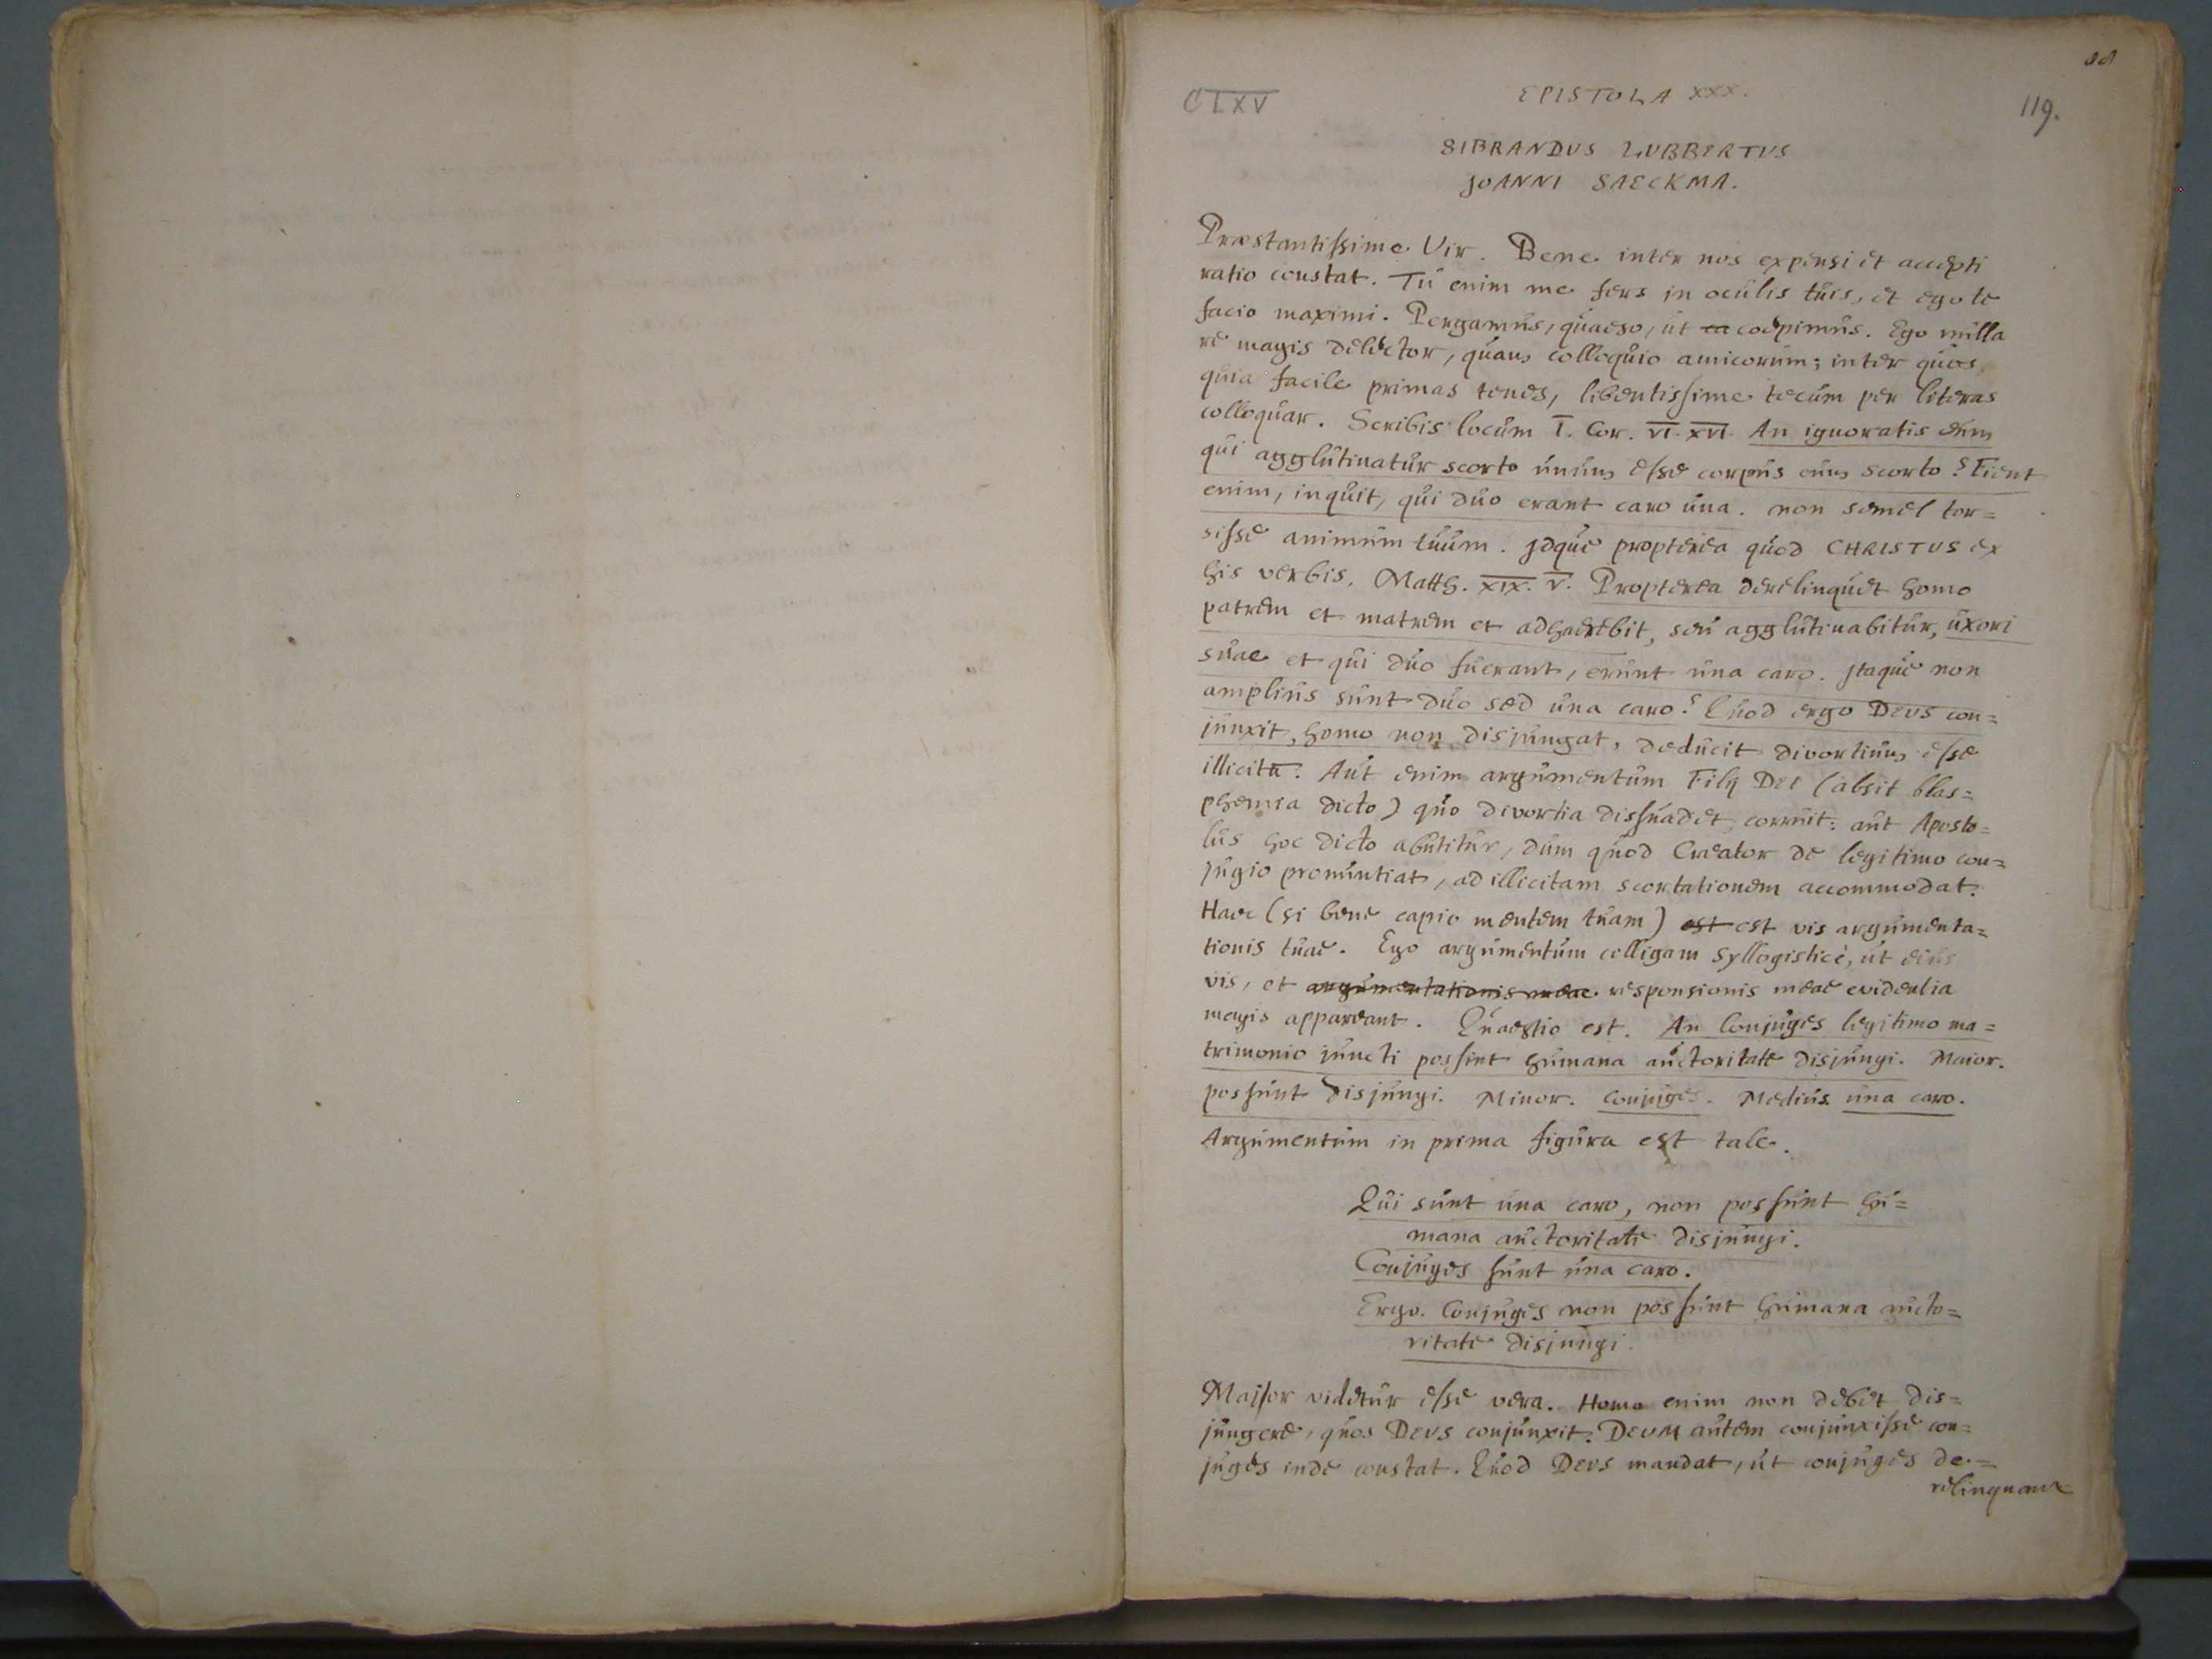 CLXV
EPISTOLA XXX.
119.
SIBRANDUS LUBBERTUS
JOANNI SAECKMA.
Præstantissime Vir. Bene inter nos expensi et accepti
ratio constat. Tu enim me fers in oculis tuis, et ego te
facio maximi. Pergamus, quaeso, ut ea coepimus. Ego nulla
re magis delector, quam colloquio amicorum; inter quos
quia facile primas tenes, libentissime tecum per literas
colloquar. Scribis locum I. Cor. VI. XVI. An ignoratis eum
qui agglutinatur scorto unum esse corpus cum scorto? Fient
enim, inquit, qui duo erant caro una. non semel tor=
sisse animum tuum. Idque propterea quod CHRISTUS ex
his verbis, Matth. XIX. V. Propterea derelinquet homo
patrem et matrem et adhaerebit, seu agglutinabitur, uxori
suae et qui duo fuerant, erunt una caro. Itaque non
amplius sunt duo sed una caro? Quod ergo DEUS con=
junxit, homo non disjungat, deducit divortium esse
illicitū. Aut enim argumentum Filij DEI (absit blas=
phemia dicto) quo divortia dissuadet, corruit: aut Aposto=
lus hoc dicto abutitur, dum quod Creator de legitimo con=
jugio pronuntiat, ad illicitam scortationem accommodat.
Haec (si bene capio mentem tuam) est est vis argumenta=
tionis tuae. Ego argumentum colligam syllogisticè, ut eius
vis, et argumentationis meae responsionis meae evidentia
magis appareant. Quaestio est. An Conjuges legitimo ma=
trimonio juncti possint humana auctoritate disjungi. Maior.
possunt disjungi. Minor. Conjuges. Medius una caro.
Argumentum in prima figura est tale.
Qui sunt una caro, non possunt hu=
mana auctoritate disjungi.
Conjuges sunt una caro.
Ergo. Conjuges non possunt humana aucto=
ritate disjungi.
Major videtur esse vera. Homo enim non debet dis=
jungere, quos DEUS conjunxit. DEUM autem conjunxisse con=
juges inde constat. Quod DEUS mandat, ut conjuges de=
relinquant